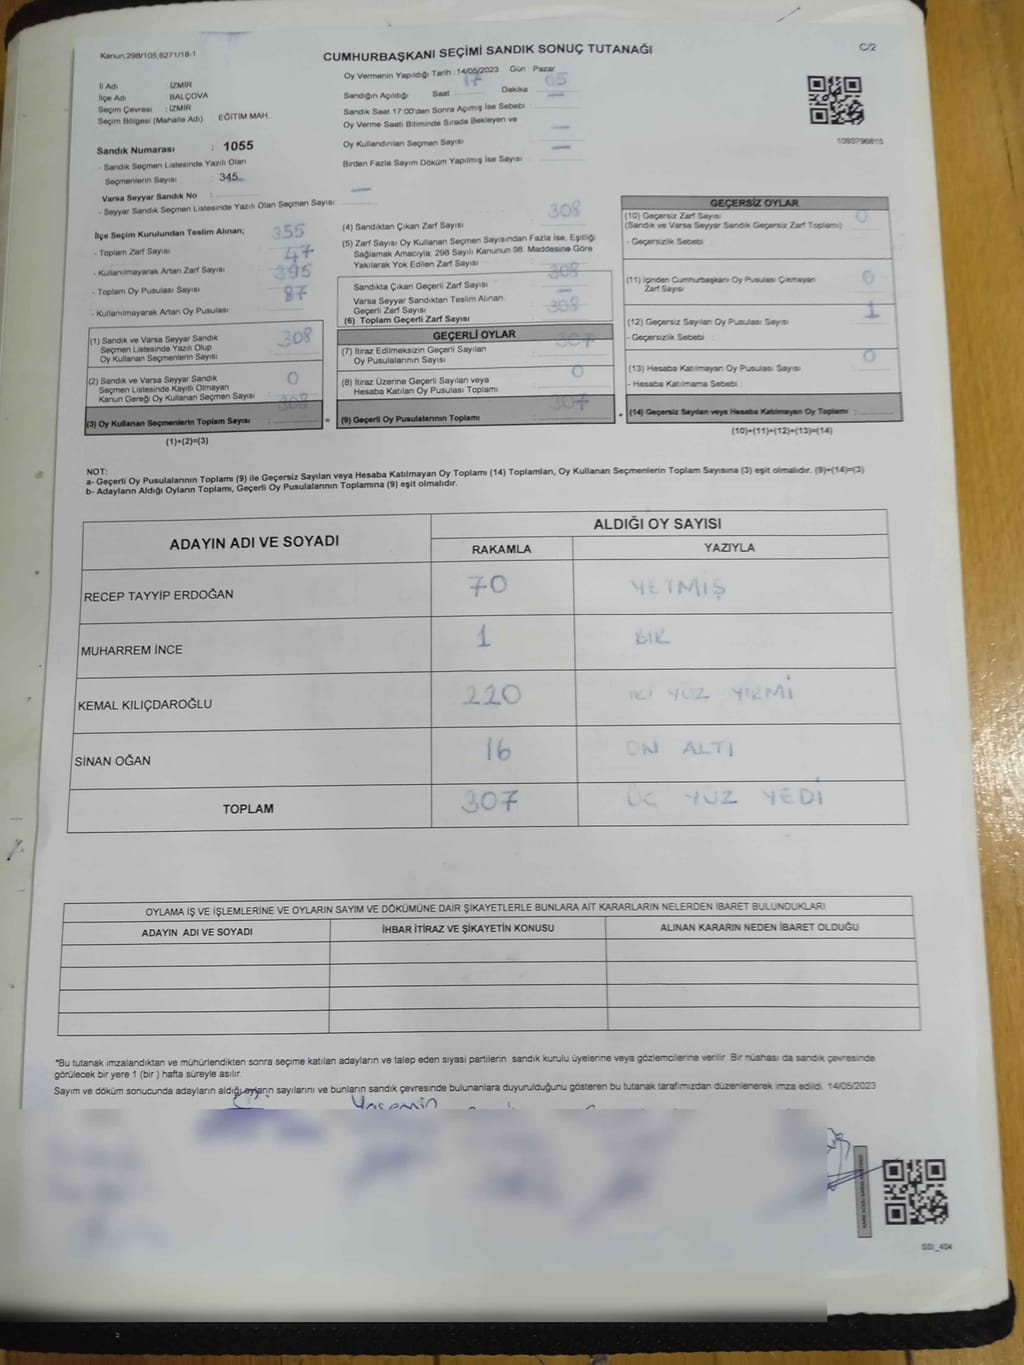 Kanun;298/105;6271/18-1
CUMHURBAŞKANI SEÇİMİ SANDIK SONUÇ TUTANAĞI
C/2
İl Adı İZMİR
İlçe Adı BALÇOVA
Seçim Çevresi : İZMİR
Seçim Bölgesi (Mahalle Adı) EĞİTİM MAH.
Sandık Numarası : 1055
- Sandık Seçmen Listesinde Yazılı Olan
Seçmenlerin Sayısı : 345
Varsa Seyyar Sandık No :
- Seyyar Sandık Seçmen Listesinde Yazılı Olan Seçmen Sayısı: —
Oy Vermenin Yapıldığı Tarih : 14/05/2023 Gün : Pazar
Sandığın Açıldığı Saat 17 Dakika 05
Sandık Saat 17:00'den Sonra Açımış İse Sebebi —
Oy Verme Saati Bitiminde Sırada Bekleyen ve
Oy Kullandırılan Seçmen Sayısı —
Birden Fazla Sayım Döküm Yapılmış İse Sayısı —
1093796815
İlçe Seçim Kurulundan Teslim Alınan;
- Toplam Zarf Sayısı 355
- Kullanılmayarak Artan Zarf Sayısı 47
- Toplam Oy Pusulası Sayısı 395
- Kullanılmayarak Artan Oy Pusulası 87
(1) Sandık ve Varsa Seyyar Sandık
Seçmen Listesinde Yazılı Olup
Oy Kullanan Seçmenlerin Sayısı 308
(2) Sandık ve Varsa Seyyar Sandık
Seçmen Listesinde Kayıtlı Olmayan
Kanun Gereği Oy Kullanan Seçmen Sayısı 0
(3) Oy Kullanan Seçmenlerin Toplam Sayısı : 308
(1)+(2)=(3)
(4) Sandıktan Çıkan Zarf Sayısı 308
(5) Zarf Sayısı Oy Kullanan Seçmen Sayısından Fazla İse, Eşitliği
Sağlamak Amacıyla; 298 Sayılı Kanunun 98. Maddesine Göre
Yakılarak Yok Edilen Zarf Sayısı
Sandıkta Çıkan Geçerli Zarf Sayısı : 308
Varsa Seyyar Sandıktan Teslim Alınan
Geçerli Zarf Sayısı : —
(6) Toplam Geçerli Zarf Sayısı : 308
GEÇERLİ OYLAR
(7) İtiraz Edilmeksizin Geçerli Sayılan
Oy Pusulalarının Sayısı : 307
(8) İtiraz Üzerine Geçerli Sayılan veya
Hesaba Katılan Oy Pusulası Toplamı : 0
= (9) Geçerli Oy Pusulalarının Toplamı : 307
GEÇERSİZ OYLAR
(10) Geçersiz Zarf Sayısı : 0
(Sandık ve Varsa Seyyar Sandık Geçersiz Zarf Toplamı)
- Geçersizlik Sebebi :
(11) İçinden Cumhurbaşkanı Oy Pusulası Çıkmayan
Zarf Sayısı : 0
(12) Geçersiz Sayılan Oy Pusulası Sayısı : 1
- Geçersizlik Sebebi :
(13) Hesaba Katılmayan Oy Pusulası Sayısı : 0
- Hesaba Katılmama Sebebi :
+ (14) Geçersiz Sayılan veya Hesaba Katılmayan Oy Toplamı :
(10)+(11)+(12)+(13)=(14)
NOT:
a- Geçerli Oy Pusulalarının Toplamı (9) ile Geçersiz Sayılan veya Hesaba Katılmayan Oy Toplamı (14) Toplamları, Oy Kullanan Seçmenlerin Toplam Sayısına (3) eşit olmalıdır. (9)+(14)=(3)
b- Adayların Aldığı Oyların Toplamı, Geçerli Oy Pusulalarının Toplamına (9) eşit olmalıdır.
ADAYIN ADI VE SOYADI ALDIĞI OY SAYISI
RAKAMLA YAZIYLA
RECEP TAYYİP ERDOĞAN 70 YETMİŞ
MUHARREM İNCE 1 BİR
KEMAL KILIÇDAROĞLU 220 İKİ YÜZ YİRMİ
SİNAN OĞAN 16 ON ALTI
TOPLAM 307 ÜÇ YÜZ YEDİ
OYLAMA İŞ VE İŞLEMLERİNE VE OYLARIN SAYIM VE DÖKÜMÜNE DAİR ŞİKAYETLERLE BUNLARA AİT KARARLARIN NELERDEN İBARET BULUNDUKLARI
ADAYIN ADI VE SOYADI İHBAR İTİRAZ VE ŞİKAYETİN KONUSU ALINAN KARARIN NEDEN İBARET OLDUĞU
*Bu tutanak imzalandıktan ve mühürlendikten sonra seçime katılan adayların ve talep eden siyasi partilerin sandık kurulu üyelerine veya gözlemcilerine verilir. Bir nüshası da sandık çevresinde
görülecek bir yere 1 (bir) hafta süreyle asılır.
Sayım ve döküm sonucunda adayların aldığı oyların sayılarını ve bunların sandık çevresinde bulunanlara duyurulduğunu gösteren bu tutanak tarafımızdan düzenlenerek imza edildi. 14/05/2023
Yasemin
SSI_404